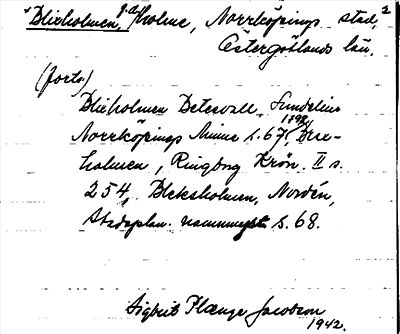 Blixholmen, f.d. holme, Norrköpings stad, 2
Östergötlands län.
(forts)
Blixholmen Beteswall, Sundelius
Norrköpings Minne s. 67, 1798, Brex-
holmen, Ringborg Krön. II s.
254, Bleksholmen, Nordén,
Stadsplan. namnmyst. s. 68.
Sigbrit Plænge Jacobson
1942.